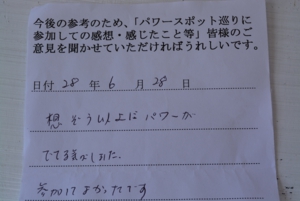 今後の参考のため、「パワースポット巡りに
参加しての感想・感じたこと等」皆様のご
意見を聞かせていただければうれしいです。
日付 28 年 6 月 28 日
想ぞう以上にパワーが
でてきました。
参加してよかったです